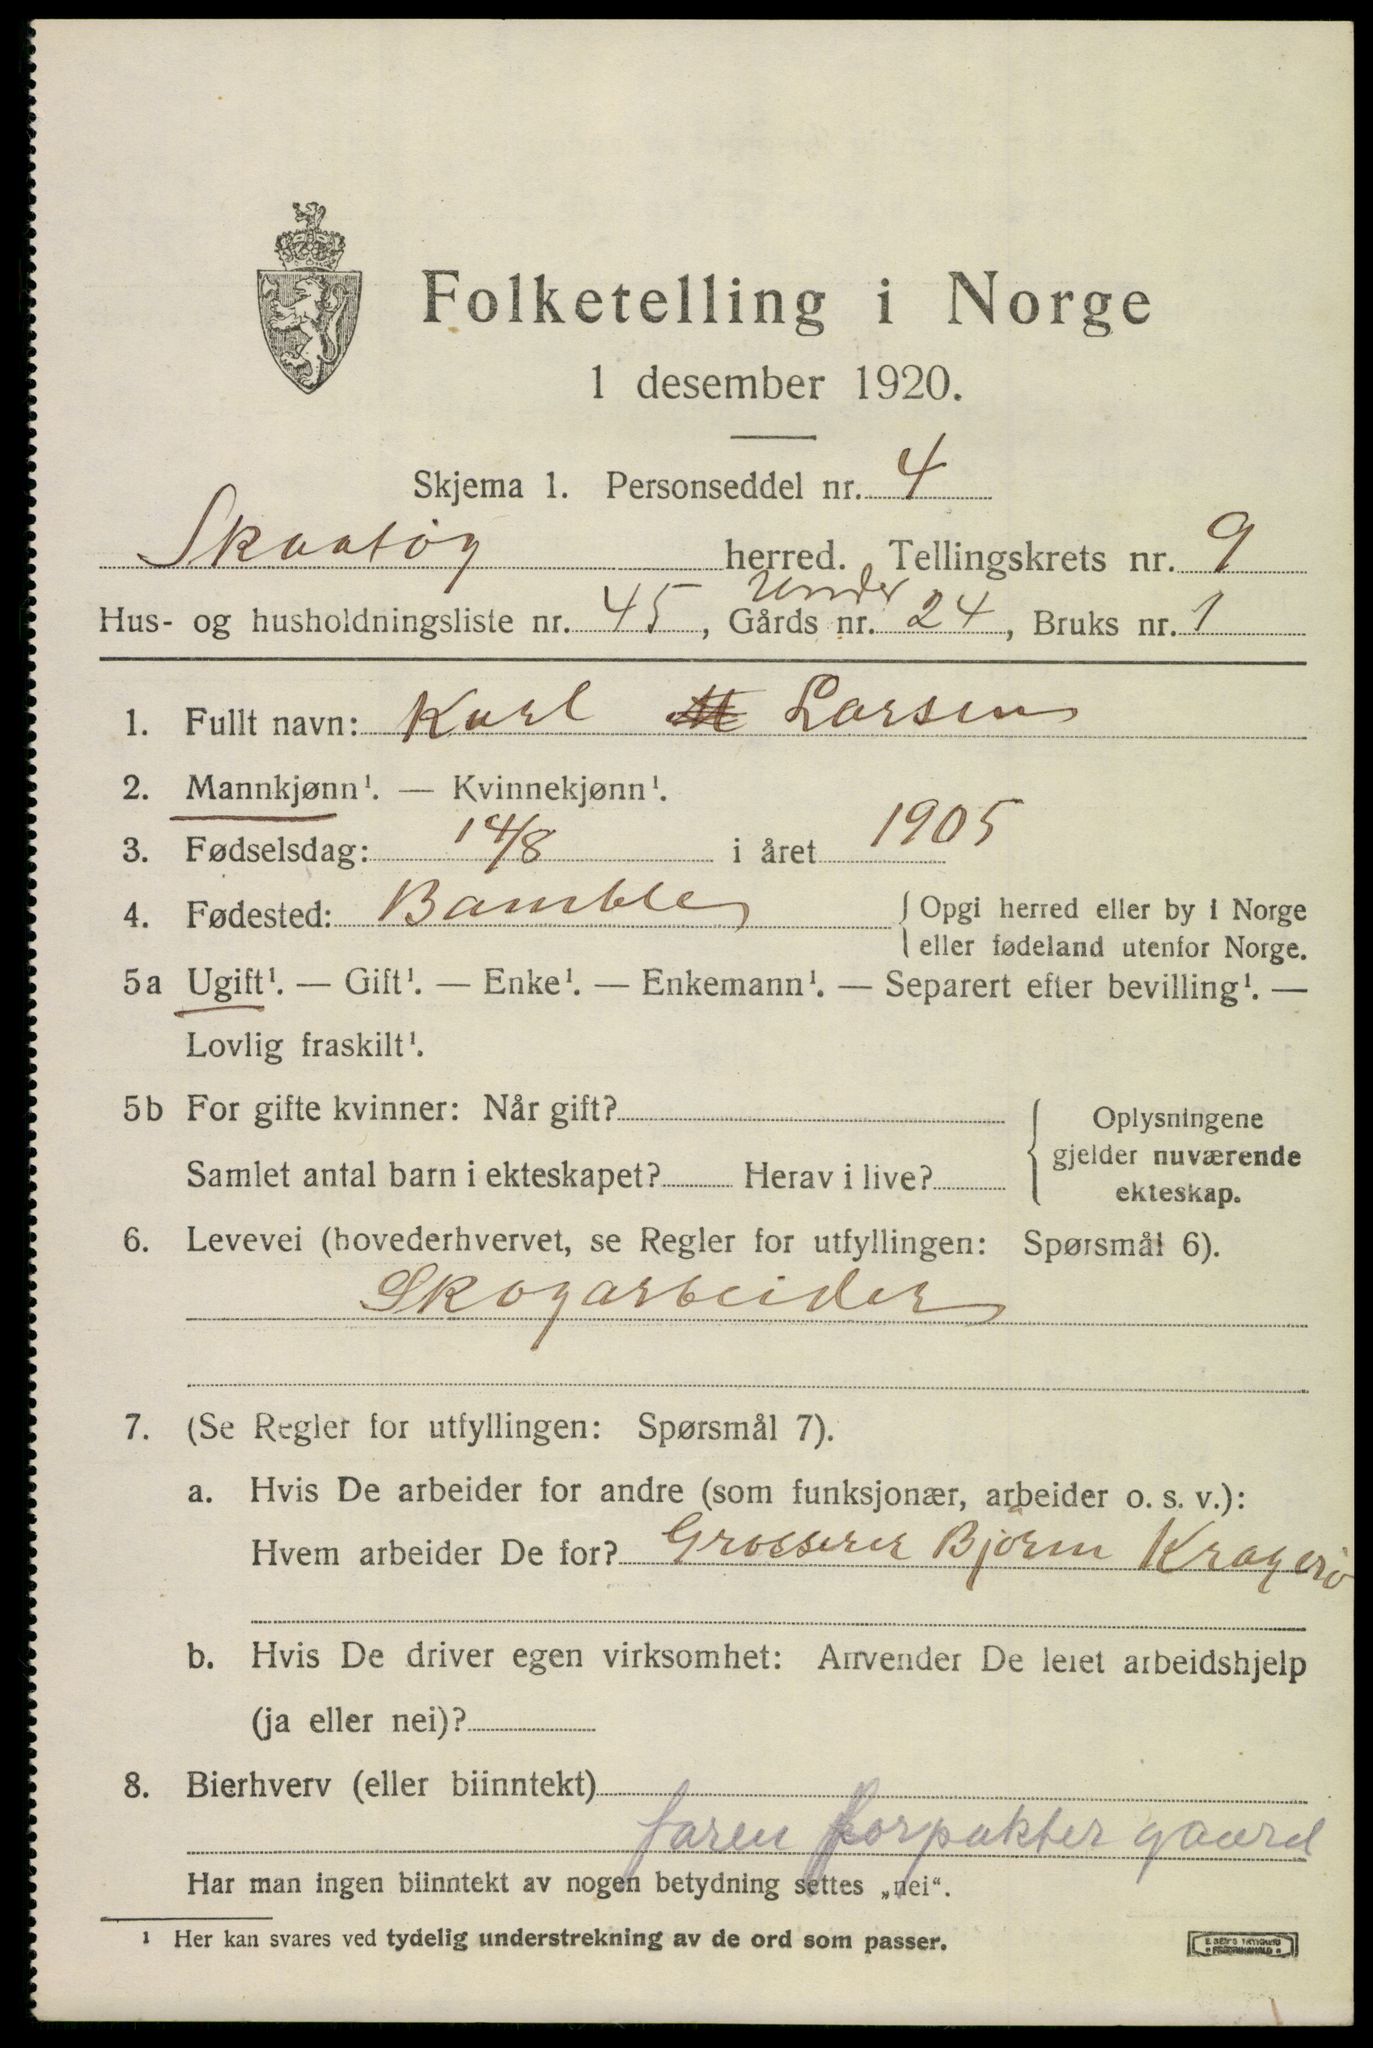 Folketelling i Norge
1 desember 1920.
Skjema 1. Personseddel nr. 4
Skaatøy herred. Tellingskrets nr. 9
Under
Hus- og husholdningsliste nr. 45, Gårds nr. 24, Bruks nr. 1
1. Fullt navn: Karl M Larsen
2. Mannkjønn¹. — Kvinnekjønn¹.
3. Fødselsdag: 14/8 i året 1905
4. Fødested: Bamble { Opgi herred eller by i Norge
eller fødeland utenfor Norge.
5a Ugift¹. — Gift¹. — Enke¹. — Enkemann¹. — Separert efter bevilling¹. —
Lovlig fraskilt¹.
5b For gifte kvinner: Når gift? { Oplysningene
gjelder nuværende
ekteskap.
Samlet antal barn i ekteskapet? Herav i live?
6. Levevei (hovederhvervet, se Regler for utfyllingen: Spørsmål 6).
Skogarbeider
7. (Se Regler for utfyllingen: Spørsmål 7).
a. Hvis De arbeider for andre (som funksjonær, arbeider o. s. v.):
Hvem arbeider De for? Grosserer Bjørn Kragerø
b. Hvis De driver egen virksomhet: Anvender De leiet arbeidshjelp
(ja eller nei)?
8. Bierhverv (eller biinntekt)
faren forpakter gaard
Har man ingen biinntekt av nogen betydning settes „nei“.
¹ Her kan svares ved tydelig understrekning av de ord som passer.